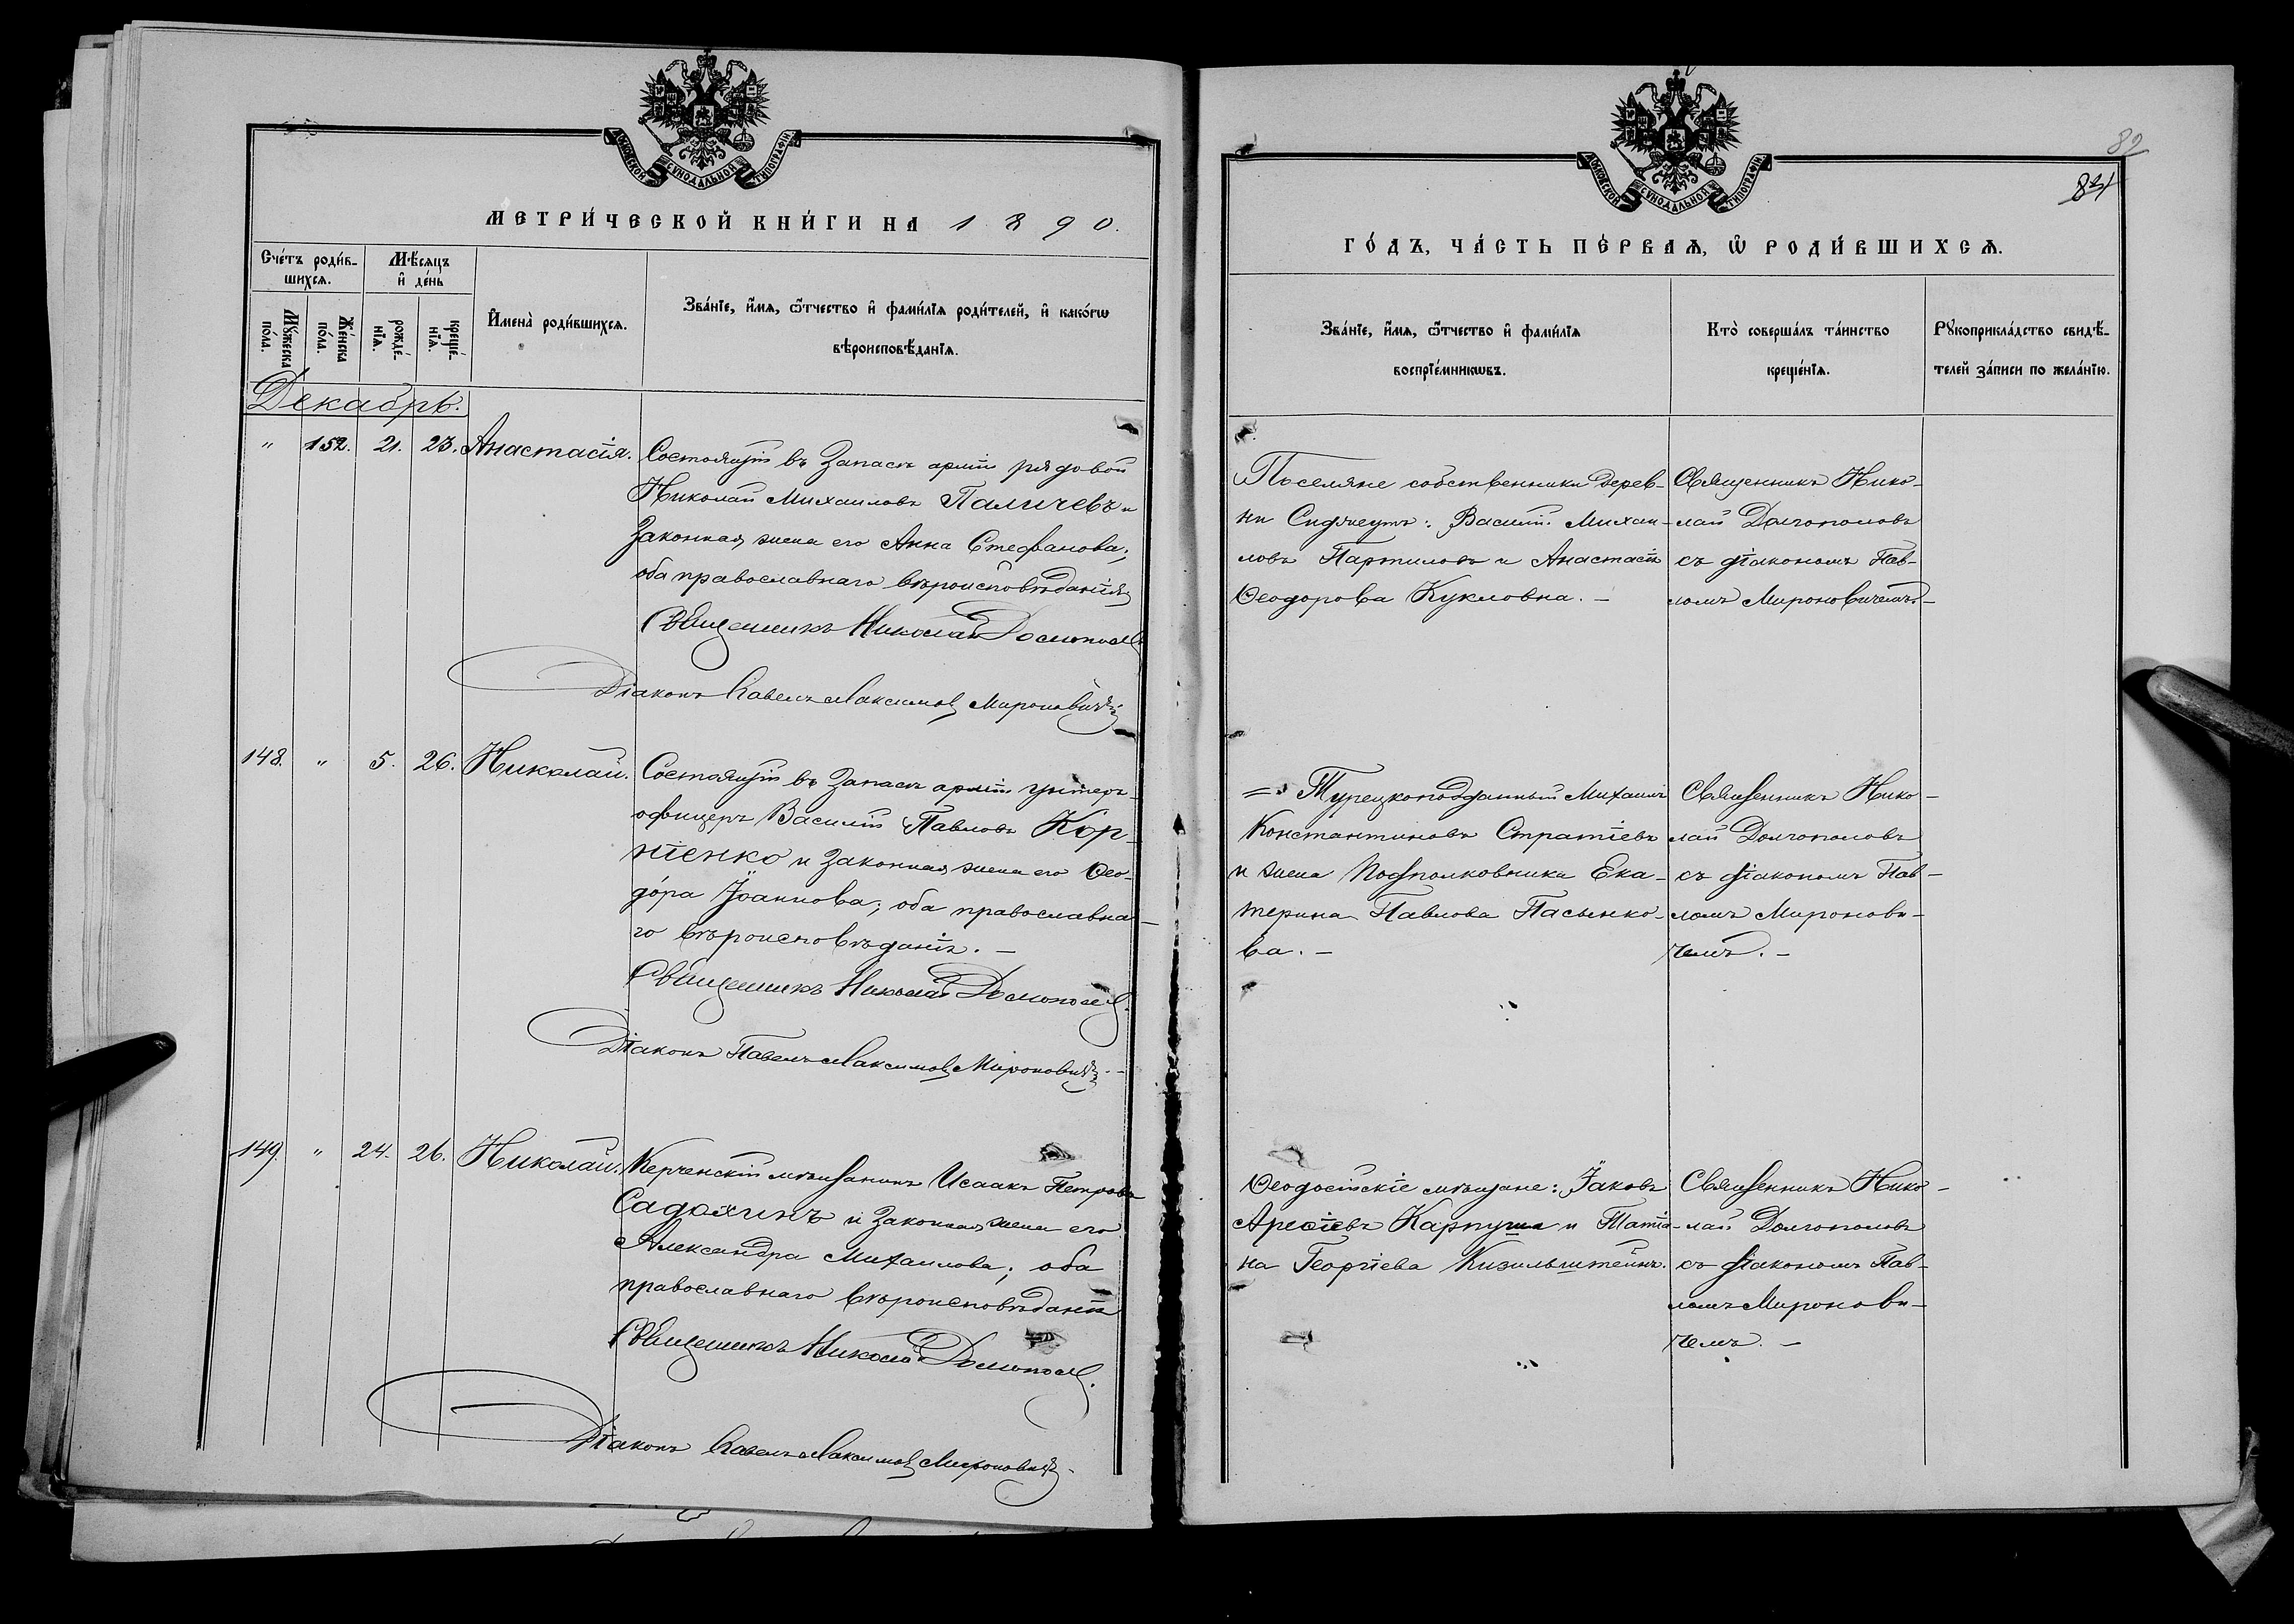 МОСКОВСКОЙ СѴНОДАЛЬНОЙ ТИПОГРАФІИ
МЕТРИ́ЧЕСКОЙ КНИ́ГИ НА 1890.
Сче́тъ роди́в-
шихсѧ.
Мѣ́сяцъ
и҆ де́нь
Мꙋ́жеска
по́ла.
Же́нска
по́ла.
рожде́-
нїѧ.
креще́-
нїѧ.
И҆мена̀ роди́вшихсѧ.
Зва́нїе, и҆́мѧ, ѻ҆́тчество и҆ фами́лїѧ роди́телей, и҆ како́гѡ
вѣроисповѣ́данїѧ.
Декабрь.
" 152. 21. 23. Анастасія.
Состоящій въ Запасѣ арміи рядовой
Николай Михаиловъ Паличевъ и
Законная жена его Анна Стефанова;
оба православнаго вѣроисповѣданія
Священникъ Николай Долгополовъ
Діаконъ Павелъ Максимовъ Мироновичъ
148. " 5. 26. Николай.
Состоящій въ Запасѣ арміи унтеръ-
офицеръ Василій Павловъ Кор-
ніенко и Законная жена его Ѳео-
дора Іоаннова; оба православна-
го вѣроисповѣданія. –
Священникъ Николай Долгополовъ
Діаконъ Павелъ Максимовъ Мироновичъ. –
149. " 24. 26. Николай.
Керченскій мѣщанинъ Исаакъ Петровъ
Садохинъ и Законная жена его
Александра Михаилова; оба
православнаго вѣроисповѣданія
Священникъ Николай Долгополовъ
Діаконъ Павелъ Максимовъ Мироновичъ
82
МОСКОВСКОЙ СѴНОДАЛЬНОЙ ТИПОГРАФІИ
ГО́ДЪ, ЧА́СТЬ ПЕ́РВАѦ, Ѡ҆ РОДИ́ВШИХСѦ.
Зва́нїе, и҆́мѧ, ѻ҆́тчество и҆ фами́лїѧ
воспрїе́мникѡвъ.
Кто̀ соверша́лъ та́инство
креще́нїѧ.
Рꙋкоприкла́дство свидѣ́-
телей за́писи по жела́нїю.
Поселяне собственники дерев-
ни : Василій Михаи-
ловъ и Анастасія
Ѳеодорова Кукловна. –
Священникъ Нико-
лай Долгополовъ
съ діакономъ Пав-
ломъ Мироновичемъ. –
Турецкоподданный Михаилъ
Константиновъ Стратіевъ
и жена Подполковника Ека-
терина Павлова Пасынко-
ва. –
Священникъ Нико-
лай Долгополовъ
съ діакономъ Пав-
ломъ Миронови-
чемъ. –
Ѳеодосійскіе мѣщане: Іаковъ
Арсеіевъ Карпуша и Татіа-
на Георгіева Кизильштейнъ.
Священникъ Нико-
лай Долгополовъ
съ діакономъ Пав-
ломъ Миронови-
чемъ. –